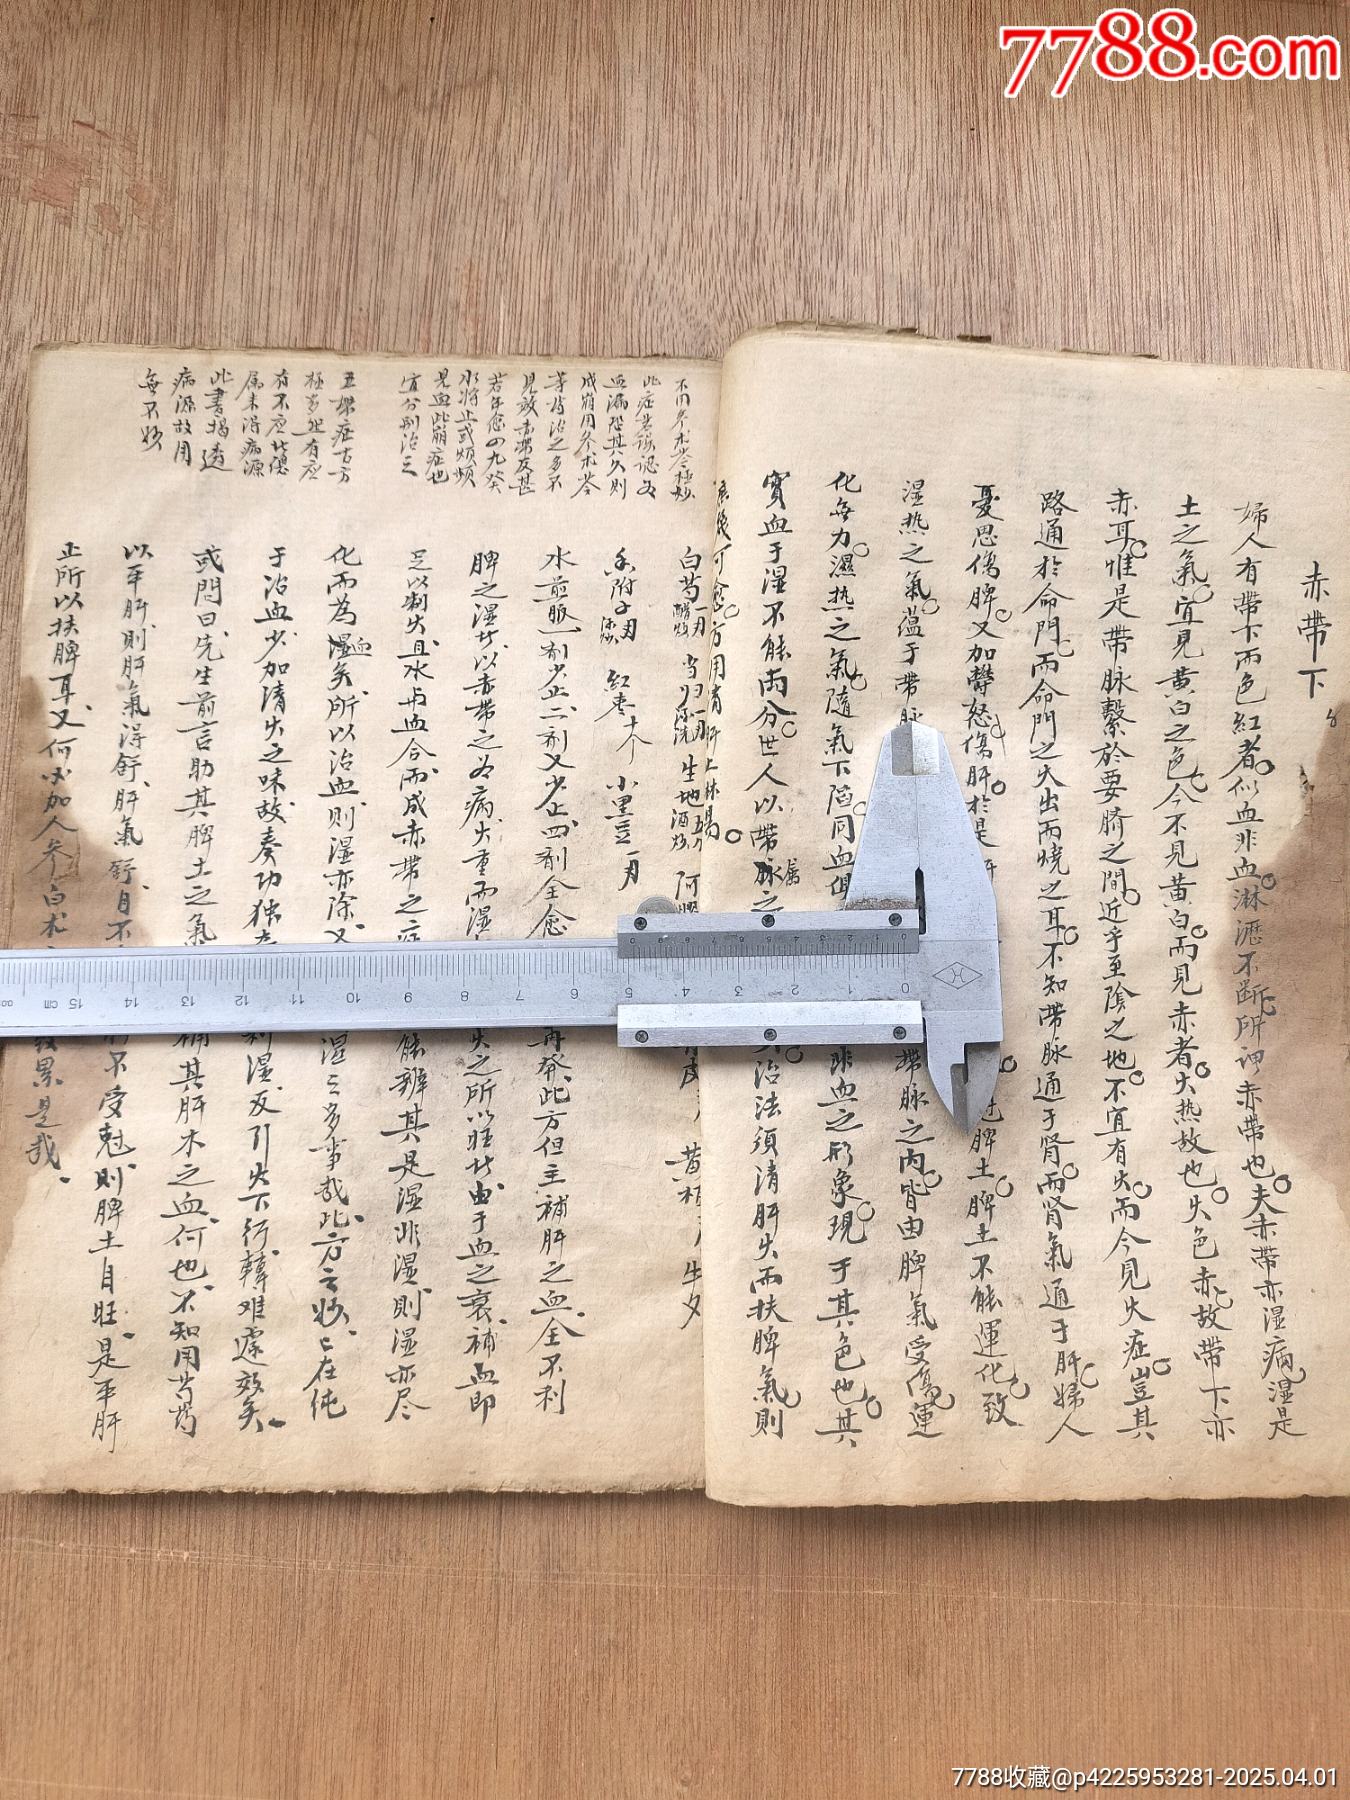 7788.com
赤帶下
婦人有帶下而色紅者似血非血淋瀝不斷所謂赤帶也夫赤帶亦湿病湿是
土之氣宜見黃白之色今不見黃白而見赤者火热故也火色赤故帶下亦
赤耳惟是帶脉繫於要臍之間近乎至陰之地不宜有火而今見火症豈其
路通於命門而命門之火出而燒之耳不知帶脉通于肾而肾氣通于肝婦人
憂思傷脾又加鬱怒傷肝於是 脾土脾土不能運化致
湿热之氣蕴于帶脉 帶脉之内皆由脾氣受傷運
化無力濕热之氣隨氣下陷同血俱 非血之形象現于其色也其
實血于湿不能两分世人以帶脉属之 治法須清肝火而扶脾氣則
可愈方用清肝止淋湯
白芍一两醋炒 当归一两酒洗 生地五酒炒 阿膠 黄柏 牛夕
香附子 紅枣十个 小黑豆一两
水煎服一剂少止二剂又少止四剂全愈 再發此方但主補肝之血全不利
脾之湿者以赤帶之为病火重而湿 火之所以旺者由于血之衰補血即
足以制火且水与血合而成赤帶之症 能辨其是湿非湿則湿亦尽
化而為血矣所以治血則湿亦除又 湿之多事哉此方之妙妙在纯
于治血少加清火之味故奏功独 利湿反引火下行轉难遽效矣
或問曰先生前言助其脾土之氣 補其肝木之血何也不知用芍药
以平肝則肝氣得舒肝氣舒自不 不受尅則脾土自旺是平肝
正所以扶脾耳又何必加人参白术 累是哉
不用参术苓極妙
此症若误認为
血漏恐其久則
成崩用参术苓
等药治之多不
見放赤帶反甚
若年愈四九癸
水将止或頻頻
見血此崩症也
宜分别治之
五帶症古方
極多然有应
有不应者總
属未得病源
此書揭透
病源故用
無不妙
15 cm 14 13 12 11 10 9 8 7 6 5 4 3 2 1 0
7788收藏@p4225953281-2025.04.01